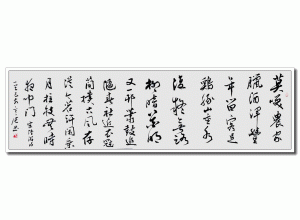 莫笑農家
臘酒渾豐
年留客足
雞豚山重水
複疑無路
柳暗花明
又一邨簫鼓追
隨春社近衣冠
簡樸古風存
從今若許閒乘
月拄杖無時
夜叩門